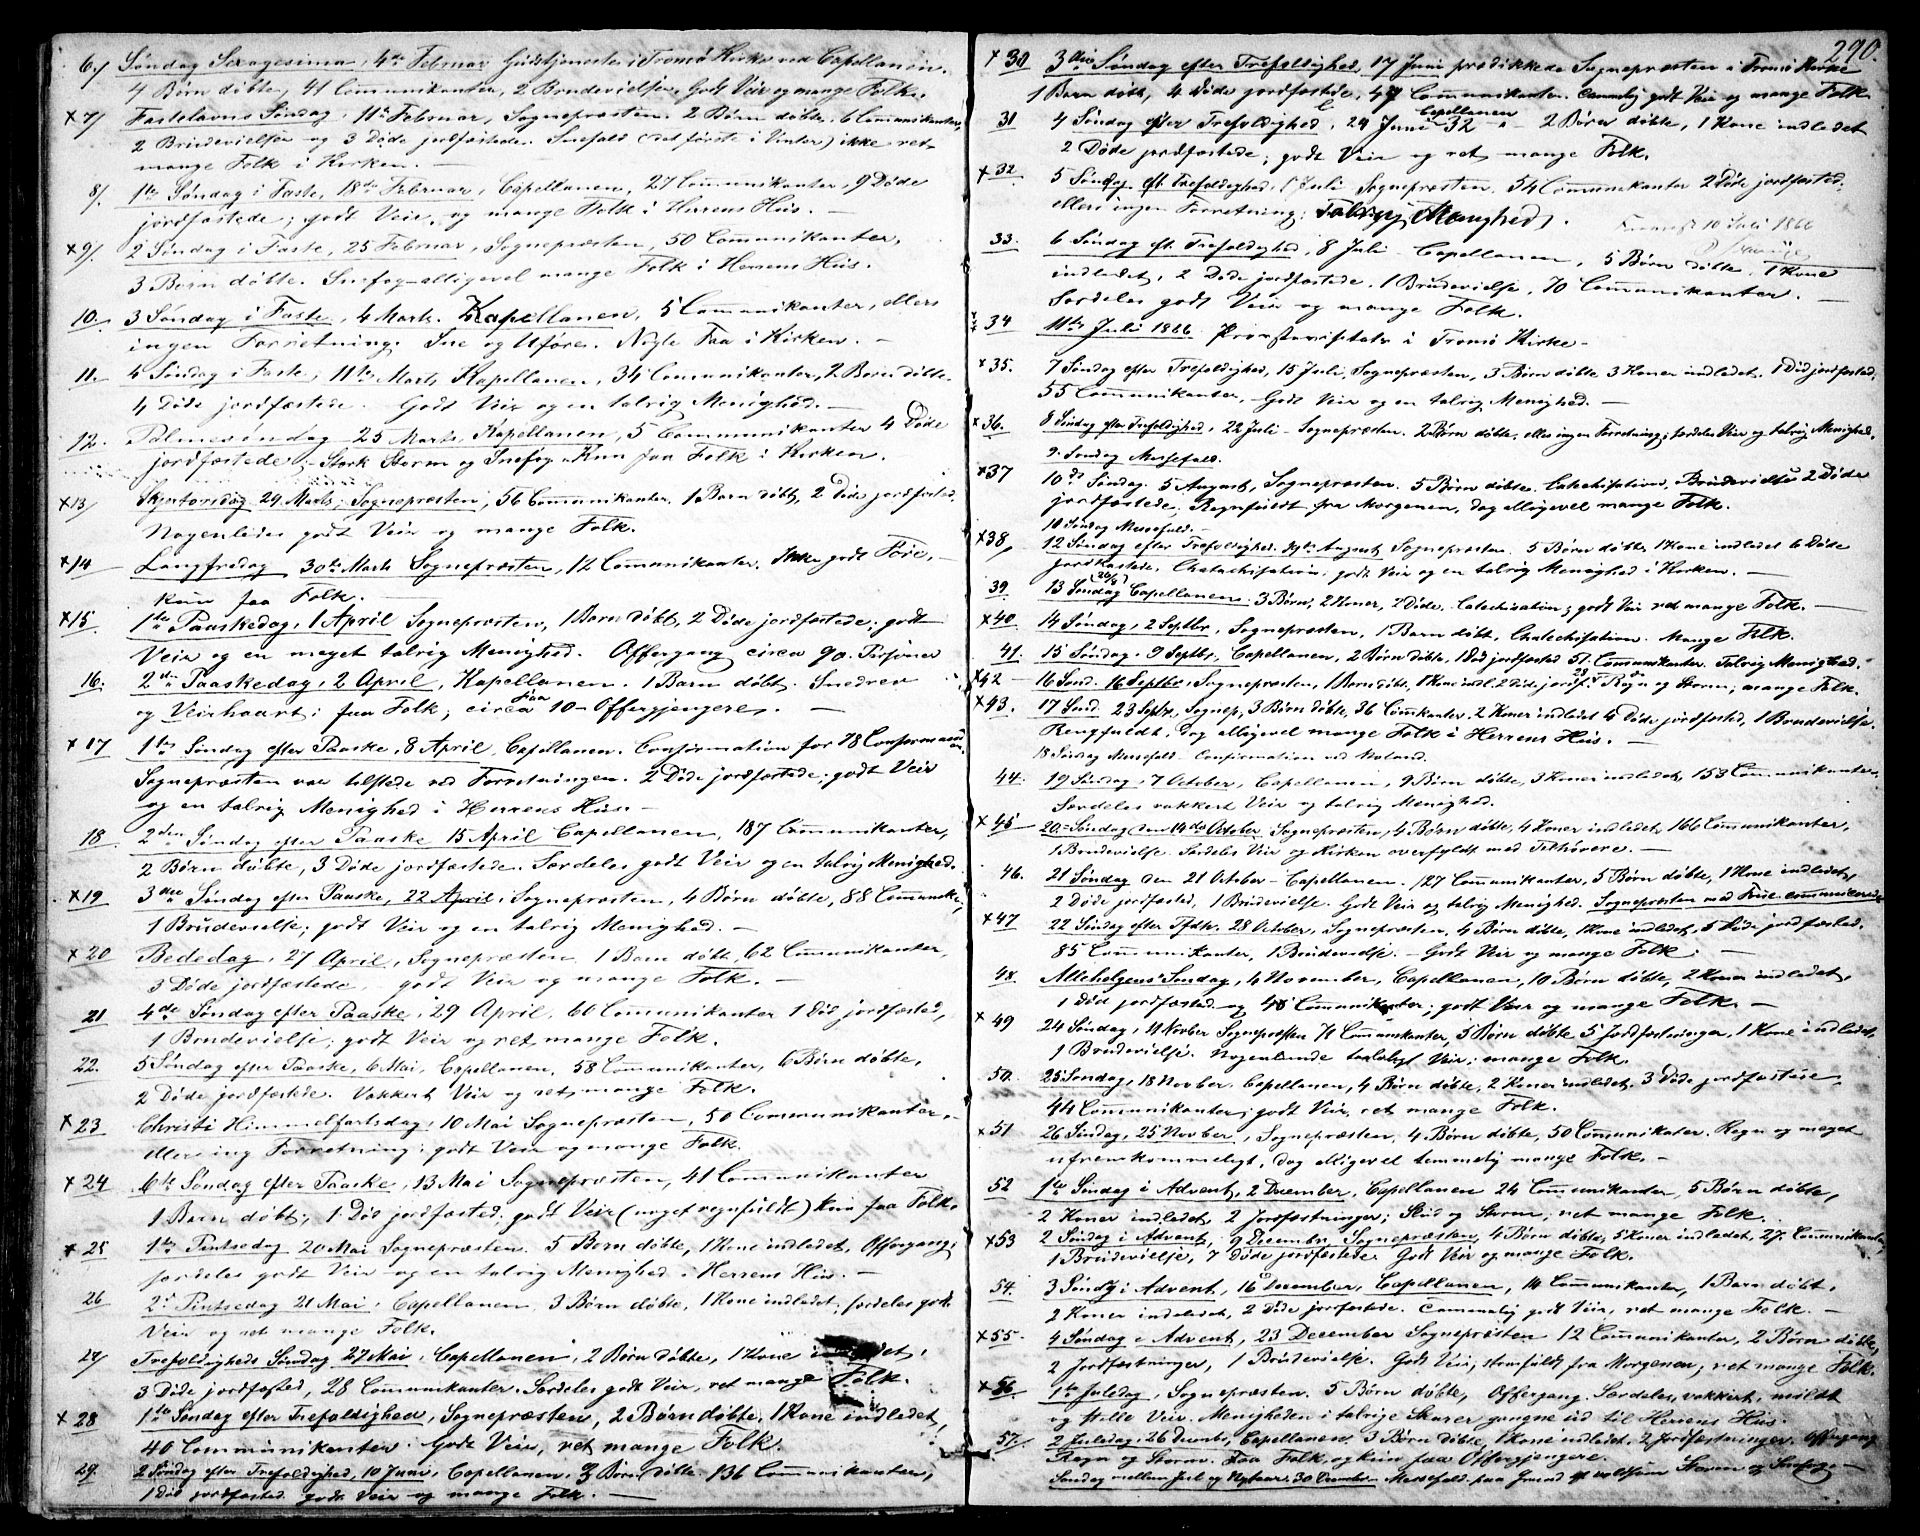 6./ Søndag Sexagesima, 4de Februar Gudstjeneste i Tromsø Kirke ved Capellanen.
4 Børn døbte, 41 Communikanter, 2 Brudevielser. Godt Veir og mange Folk.
x 7/ Fastelavns Søndag, 11te Februar, Sognepræsten. 2 Børn døbte, 6 Communikanter,
2 Brudevielser og 3 Døde jordfæstede. Snefald (det første i Vinter) ikke ret
mange Folk i Kirken.
8/. 1te Søndag i Faste, 18de Februar, Capellanen, 27 Communikanter, 9 Døde
jordfæstede; godt Veir, og mange Folk i Herrens Hus. —
x 9/. 2 Søndag i Faste, 25 Februar, Sognepræsten, 50 Communikanter,
3 Børn døbte. Snefog – alligevel mange Folk i Herrens Hus.
10. 3 Søndag i Faste, 4 Marts. Kapellanen, 5 Communikanter, ellers
ingen Forretning. Sne og Uføre. Nogle Faa i Kirken. —
11. 4 Søndag i Faste, 11te Marts Kapellanen, 34 Communikanter, 2 Børn døbte.
4 Døde jordfæstede. Godt Veir og en talrig Menighed. —
12. Palmesøndag 25 Marts, Kapellanen, 5 Communikanter 4 Døde
jordfæstede; Stærk Storm og Snefog. Kun faa Folk i Kirken.
x 13/ Skjertorsdag 29 Marts, Sognepræsten, 56 Communikanter. 1 Barn døbt, 2 Døde jordfæsted.
Nogenledes godt Veir og mange Folk.
x 14 Langfredag 30te Marts Sognepræsten, 12 Communikanter. Ikke godt Føre,
kun faa Folk. —
x 15 1te Paaskedag, 1 April Sognepræsten, 1 Barn døbt, 2 Døde jordfæstede; godt
Veir og en meget talrig Menighed. Offergang circa 90 Personer
16. 2den Paaskedag, 2 April, Kapellanen. 1 Barn døbt. Snedrev
og Veirhaart; faa Folk; circa 10 Offergjengere. —
x 17 1te Søndag efter Paaske, 8 April, Capellanen. Confirmation for 78 Confirmanden.
Sognepræsten var tilstede ved Forretningen. 2 Døde jordfæstede; godt Veir
og en talrig Menighed i Herrens Hus. —
18. 2den Søndag efter Paaske 15 April Capellanen, 187 Communikanter,
2 Børn døbte, 3 Døde jordfæstede. Særdeles godt Veir og en talrig Menighed.
x 19 3die Søndag efter Paaske, 22 April, Sognepræsten, 4 Børn døbte, 88 Communik.,
1 Brudevielse; godt Veir og en talrig Menighed. —
x 20 Bededag, 27 April, Sognepræsten 1 Barn døbt, 62 Communikanter,
3 Døde jordfæstede, godt Veir og mange Folk. —
21 4de Søndag efter Paaske, 29 April, 60 Communikanter 1 Død jordfæsted,
1 Brudevielse; godt Veir og ret mange Folk.
22. 5 Søndag efter Paaske, 6 Mai, Capellanen, 58 Communikanter, 6 Børn døbte,
2 Døde jordfæstede. Vakkert Veir og ret mange Folk.
x 23 Christi Himmelfartsdag, 10 Mai Sognepræsten, 50 Communikanter. —
ellers ing Forretning; godt Veir og mange Folk.
x 24 6te Søndag efter Paaske, 13 Mai Sognepræsten, 41 Communikanter
1 Barn døbt; 1 Død jordfæsted; godt Veir (noget regnfuldt) kun faa Folk.
x 25 1te Pintsedag 20 Mai Sognepræsten. 5 Børn døbte, 1 Kone indledet, Offergang;
særdeles godt Veir og en talrig Menighed i Herrens Hus. —
26 2 Pintsedag 21 Mai, Capellanen, 3 Børn døbte, 1 Kone indledet, særdeles godt
Veir og ret mange Folk.
27/ Trefoldigheds Søndag 27 Mai, Capellanen, 2 Børn døbte, 1 Kone indledet,
3 Døde jordfæsted, 28 Communikanter. Særdeles godt Veir, ret mange Folk.
x 28 1te Søndag efter Trefoldighed, Sognepræsten, 2 Børn døbte, 1 Kone indledet,
40 Communikanter. Godt Veir, ret mange Folk.
29. 2 Søndag efter Trefoldighed, 10 Juni, Capellanen, 3 Børn døbte. 136 Communikanter,
1 Død jordfæsted. godt Veir og mange Folk. —
290.
x 30 3die Søndag efter Trefoldighed, 17 Juni prædikkede Sognepræsten i Tromsø Kirke
1 Barn døbt, 4 Døde jordfæstede, 47 Communikanter. temmelig godt Veir og mange Folk.
31 4 Søndag efter Trefoldighed, 24 Juni Capellanen 32 " 2 Børn døbte, 1 Kone indledet
2 Døde jordfæstede; godt Veir og ret mange Folk.
x 32 5 Søndag eft. Trefoldighed, 1 Juli Sognepræsten, 54 Communikanter 2 Døde jordfæsted.
ellers ingen Forretning; Talrig Menighed.
10 Juli 1866
33. 6 Søndag eft. Trefoldighed, 8 Juli Capellanen, 5 Børn døbte, 1 Kone
indledet, 2 Døde jordfæstede. 1 Brudevielse, 70 Communikanter. —
Særdeles godt Veir og mange Folk.
34 11te Juli 1866. Provstevisitats i Tromsø Kirke —
x 35. 7 Søndag efter Trefoldighed, 15 Juli, Sognepræsten, 3 Børn døbte 3 Koner indledet. 1 Død jordfæsted.
55 Communikanter, Godt Veir og en talrig Menighed. —
x 36. 8 Søndag efter Trefoldighed, 22 Juli Sognepræsten. 2 Børn døbte, ellers ingen Forretning; særdeles Veir og talrig Menighed.
9. Søndag Messefald.
x 37 10de Søndag. 5 August, Sognepræsten. 5 Børn døbte. Catechisation, Brudevielse 2 Døde
jordfæstede; Regnfuldt fra Morgenen, dog alligevel mange Folk.
10 Søndag Messefald. —
x 38 12 Søndag efter Trefoldighed. 19te August, Sognepræsten. 5 Børn døbte 1 Kone indledet 6 Døde
jordfæstede, Chatechisation; godt Veir og en talrig Menighed i Kirken. —
39. 13 Søndag (26/8) Capellanen 3 Børn, 2 Koner, 2 Døde. Catechisation; godt Veir ret mange Folk. —
x 40. 14 Søndag, 2 Septbr, Sognepræsten, 1 Barn døbt, Chatechisation. Mange Folk.
41. 15 Søndag. 9 Septbr, Capellanen, 2 Børn døbte, 1 Død jordfæsted 51 Communikanter. Talrig Menighed.
x 42 16 Sønd. 16 Septbr, Sognepræsten, 1 Barn døbt, 1 Kone indl. 2 Døde jordf. Regn og Storm; mange Folk.
x 43. 17 Sønd. 23 Septr, Sognep, 3 Børn døbte, 36 Commkanter 2 Koner indledet 4 Døde jordfæsted, 1 Brudevielse.
Rengfuldt, Dog alligevel mange Folk i Herrens Hus. —
18 Søndag Messefald. Confirmation ved
44. 19 Søndag, 7 October, Capellanen, 9 Børn døbte, 3 Koner indledet, 153 Communikanter,
Særdeles vakkert Veir og talrig Menighed.
x 45 20. Søndag den 14de October Sognepræsten, 4 Børn døbte, 4 Koner indledet, 166 Communikanter,
1 Brudevielse. Særdeles Veir og Kirken overfyldt med Tilhørere. —
46. 21 Søndag den 21 October – Capellanen. 127 Communikanter, 5 Børn døbte, 1 Kone indledet,
2 Døde jordfæsted, 1 Brudevielse. Godt Veir og talrig Menighed. Sognepræsten med Frue communicerede
x 47 22 Søndag efter Trfdh. 28 October, Sognepræsten, 4 Børn døbte, 1 Kone indledet, 5 Døde jordfæsted.
85 Communikanter, 1 Brudevielse. – Godt Veir og mange Folk. —
48. Allehelgens Søndag, 4 November, Capellanen, 10 Børn døbte, 2 Koner indledet,
1 Død jordfæsted og 48 Communikanter; godt Veir og mange Folk. —
x 49 24 Søndag, 11 Novber Sognepræsten 71 Communikanter, 3 Børn døbte 5 Jordfæstninger, 1 Kone indledet,
1 Brudevielse. Nogenlunde taaleligt Veir; mange Folk.
50. 25 Søndag, 18 Novber. Capellanen, 4 Børn døbte, 2 Koner indledet, 3 Døde jordfæstede,
44 Communikanter; godt Veir, ret mange Folk.
x 51 26 Søndag, 25 Novber, Sognepræsten, 4 Børn døbte, 50 Communikater. Regn og meget
ufremkommeligt, dog alligevel temmelig mange Folk. —
52 1te Søndag i Advent, 2 December, Capellanen 24 Communikanter, 5 Børn døbte,
2 Koner indledet, 2 Jordfæstninger; Slud og Storm; ret mange Folk.
x 53 2 Søndag i Advent, 9 Decembr, Sognepræsten, 4 Børn døbte, 5 Koner indledet, 27 Communikanter,
1 Brudevielse, 7 Døde jordfæstede. Godt Veir og mange Folk.
54. 3 Søndg i Advent, 16 December, Capellanen, 14 Communikanter, 1 Barn døbt.
2 Koner indledet, 2 Døde jorfæstede. Temmelig godt Veir, ret mange Folk. —
x 55. 4 Søndag i Advent, 23 December Sognepræsten 12 Communikanter, 2 Børn døbte,
2 Jordfæstninger, 1 Brudevielse. Godt Veir, stormfuldt fra Morgenen; ret mange Folk.
x 56 1te Juledag, Sognepræsten. 5 Børn døbte, Offergang. Særdeles vakkert, mildt
og stille Veir. Menigheden i talrige Skarer gangne ud til Herrens Hus.
57. 2 Juledag, 26 Decembr, Capellanen. 3 Børn døbte, 1 Kone indledet, 2 Jordfæstninger. Offergang
Regn og Storm. Faa Folk og kun faa Offergjengere.
Søndag mellem Jul og Nytaar, 30 December Messefald paa Grund af voldsom Storm og Snefog —